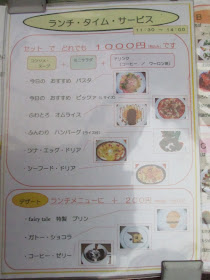 ランチ・タイム・サービス
11:30 ～ 14:00
セット で どれでも 1000円 です
今日の おすすめ パスタ
今日の おすすめ ピッツァ
ふわとろ オムライス
ふんわり ハンバーグ
ツナ・エッグ・ドリア
シーフード・ドリア
デザート ランチメニューに + 200円
・fairy tale 特製 プリン
・ガトー・ショコラ
・コーヒー・ゼリー